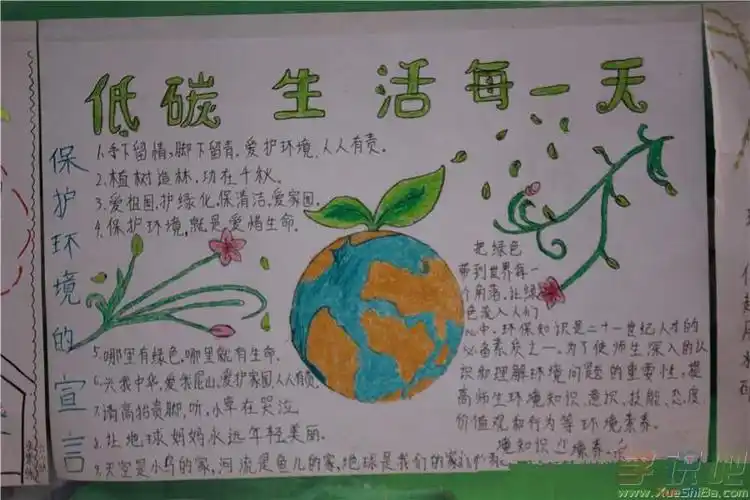 低碳生活每一天
保护环境的宣言
1.手下留情,脚下留青.爱护环境、人人有责。
2.植树造林,功在千秋。
3.爱祖国,护绿化,保清洁,爱家园.
4.保护环境,就是爱惜生命.
5.哪里有绿色,哪里就有生命.
6.兴我中华,爱我昆山,爱护家园人人有责.
7.请高抬贵脚,听,小草在哭泣
8.让地球妈妈永远年轻美丽.
9.天空是小鸟的家,河流是鱼儿的家,地球是我们的家
把绿色
带到世界每一
个角落,让绿
色流入人们
心中.环保知识是二十一世纪人才的
必备素质之一.为了使师生深入的认
识和理解环境问题的重要性,提
高师生环境知识、意识、技能、态度
价值观和行为等环境素养.
境知识
学识吧
www.XueShiBa.com